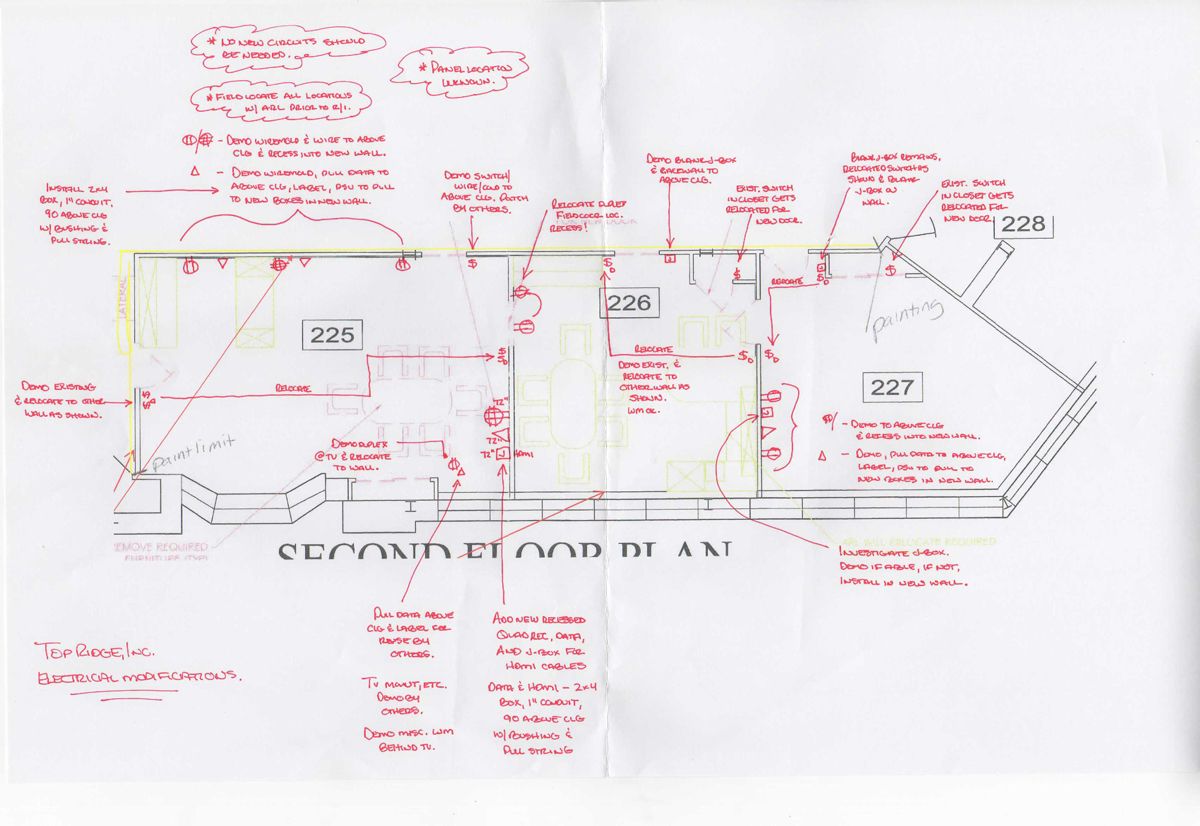 * NO NEW CIRCUITS SHOULD
BE NEEDED.
* PANEL LOCATION
UNKNOWN.
* FIELD LOCATE ALL LOCATIONS
W/ ARL PRIOR TO R/I.
- DEMO WIREMOLD & WIRE TO ABOVE
CLG & RECESS INTO NEW WALL.
- DEMO WIREMOLD, PULL DATA TO
ABOVE CLG, LABEL, PSU TO PULL
TO NEW BOXES IN NEW WALL.
INSTALL 2x4
BOX, 1" CONDUIT,
90 ABOVE CLG
W/ BUSHING &
PULL STRING.
DEMO SWITCH/
WIRE/CND TO
ABOVE CLG. PATCH
BY OTHERS.
RELOCATE DUPLEX
FIELD COOR LOC.
RECESS!
DEMO BLANK J-BOX
& RACEWAY TO
ABOVE CLG.
EXIST. SWITCH
IN CLOSET GETS
RELOCATED FOR
NEW DOOR.
BLANK J-BOX REMAINS,
RELOCATED SWITCH AS
SHOWN & BLANK
J-BOX ON
WALL.
EXIST. SWITCH
IN CLOSET GETS
RELOCATED FOR
NEW DOOR.
228
LATERAL
225
226
RELOCATE
painting
227
RELOCATE
DEMO EXIST. &
RELOCATE TO
OTHER WALL AS
SHOWN.
WM OK.
DEMO EXISTING
& RELOCATE TO OTHER
WALL AS SHOWN.
RELOCATE
paint limit
DEMO DUPLEX
@ TV & RELOCATE
TO WALL.
72"
72"
72"
HDMI
$/ - DEMO TO ABOVE CLG
& RECESS INTO NEW WALL.
- DEMO, PULL DATA TO ABOVE CLG,
LABEL, PSU TO PULL TO
NEW BOXES IN NEW WALL.
REMOVE REQUIRED
FURNITURE (TYP)
SECOND FLOOR PLAN
ARL WILL RELOCATE REQUIRED
INVESTIGATE J-BOX.
DEMO IF ABLE, IF NOT,
INSTALL IN NEW WALL.
PULL DATA ABOVE
CLG & LABEL FOR
REUSE BY
OTHERS.
TV MOUNT, ETC.
DEMO BY
OTHERS.
DEMO MISC. WM
BEHIND TV.
ADD NEW RECESSED
QUAD REC, DATA,
AND J-BOX FOR
HDMI CABLES
DATA & HDMI - 2x4
BOX, 1" CONDUIT,
90 ABOVE CLG
W/ BUSHING &
PULL STRING
TOP RIDGE, INC.
ELECTRICAL MODIFICATIONS.